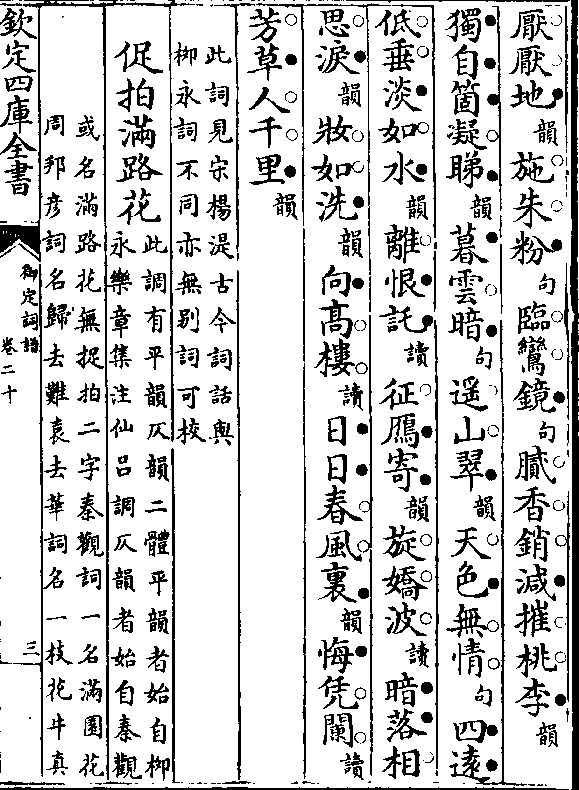 厭厭地韻施朱粉句臨鸞鏡句膩香銷減摧桃李韻
獨自箇凝睇韻暮雲暗句遥山翠韻天色無情句四逺
低垂淡如水韻離恨託讀征鴈寄韻旋嬌波讀暗落相
思淚韻妝如洗韻向髙樓讀日日春風裏韻悔凭闌讀
芳草人千里韻
此詞見宋楊湜古今詞話與
栁永詞不同亦無别詞可校
促拍滿路花
此調有平韻仄韻二體平韻者始自栁
永樂章集注仙呂調仄韻者始自秦觀
或名滿路花無捉拍二字秦觀詞一名滿園花
周邦彦詞名歸去難袁去華詞名一枝花牛真
欽定四庫全書
御定詞譜
卷二十
三